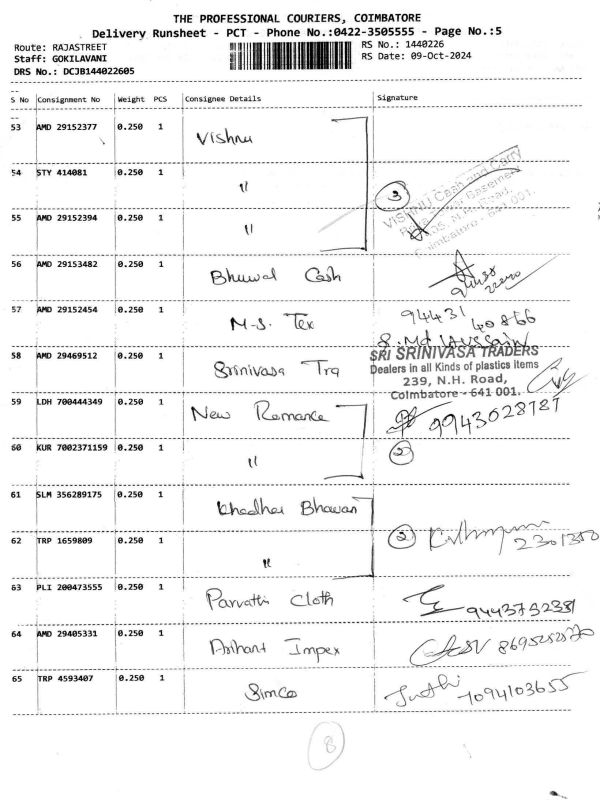 THE PROFESSIONAL COURIERS, COIMBATORE
Delivery Runsheet - PCT - Phone No.:0422-3505555 - Page No.:5
Route: RAJASTREET
RS No.: 1440226
Staff: GOKILAVANI
RS Date: 09-Oct-2024
DRS No.: DCJB144022605
S No Consignment No Weight PCS Consignee Details Signature
53 AMD 29152377 0.250 1 Vishnu
54 STY 414081 0.250 1 "
3
VISHNU Cash and Carry
55 AMD 29152394 0.250 1 "
Coimbatore - 641 001.
56 AMD 29153482 0.250 1 Bhuwal Cash
57 AMD 29152454 0.250 1 M.S. Tex 94431 40866
S. Md Hussain
58 AMD 29469512 0.250 1 Srinivasa Tra
SRI SRINIVASA TRADERS
Dealers in all Kinds of plastics items
239, N.H. Road,
Coimbatore - 641 001.
59 LDH 700444349 0.250 1 New Romance 9943028787
60 KUR 7002371159 0.250 1 "
2
61 SLM 356289175 0.250 1 Khadhar Bhavan
62 TRP 1659809 0.250 1 " 2 2301350
63 PLI 200473555 0.250 1 Parvathi Cloth 9443732381
64 AMD 29405331 0.250 1 Arihant Impex
65 TRP 4593407 0.250 1 Simco 7094103655
8